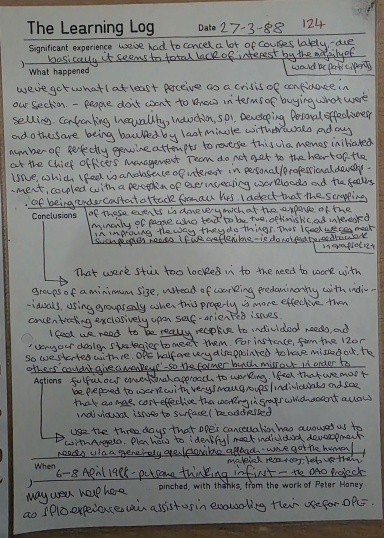 The Learning Log Date 27-3-88 124
Significant experience we've had to cancel a lot of courses lately - due
basically it seems to total lack of interest by the majority of
What happened would be participants
we've got what I at least perceive as a crisis of confidence in
our section - people don't want to know in terms of buying what we're
selling. Confronting Inequality, Induction, SDI, Developing Personal Effectiveness
and others are being baulked by last minute withdrawals and any
number of perfectly genuine attempts to reverse this via memos initiated
at the Chief Officers' Management Team do not get to the heart of the
issue, which I feel is an absence of interest in personal/professional develop-
-ment, coupled with a perception of ever increasing workloads and the feeling
of being under constant attack from our HQ. I detect that the scrapping
Conclusions of these events is done very much at the expense of the
minority of people who tend to be the optimistic and interested
in improving the way they do things. Thus I feel we can meet
such people's needs if we are flexible - is do not need to work
in groups of 12+
That we're still too locked in to the need to work with
groups of a minimum size, instead of working predominantly with indiv-
-iduals, using groups only when this properly is more effective than
concentrating exclusively upon self-oriented issues.
I feel we need to be really receptive to individual needs, and
vary our design strategies to meet them. For instance, from the 12 or
so we started with re. DPE half are very disappointed to have missed out. The
others 'couldn't give a monkeys' - so the former must miss out in order to
Actions fulfil our conventional approach to working. I feel that we must
be prepared to work with very small groups/individuals and see
that as more cost effective than working in groups which don't allow
individual issues to surface/be addressed
Use the three days that DPE's cancellation has allowed us to
with Angela. Plan how to identify/meet individual development
needs via a genuinely open/flexible approach - we've got the human/
material resources, let's use them.
When 6-8 April 1988 - put some thinking in first - the DAO Project
may well help here pinched, with thanks, from the work of Peter Honey
as SPIO experiences can assist us in evaluating their use for DPE.